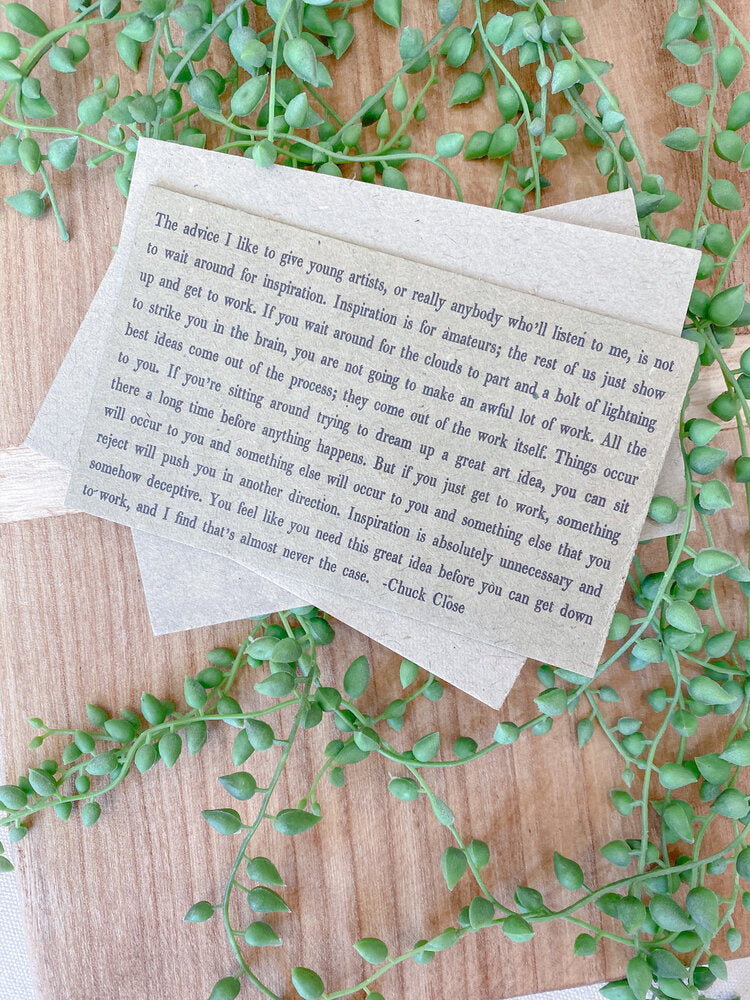 The advice I like to give young artists, or really anybody who'll listen to me, is not
to wait around for inspiration. Inspiration is for amateurs; the rest of us just show
up and get to work. If you wait around for the clouds to part and a bolt of lightning
to strike you in the brain, you are not going to make an awful lot of work. All the
best ideas come out of the process; they come out of the work itself. Things occur
to you. If you're sitting around trying to dream up a great art idea, you can sit
there a long time before anything happens. But if you just get to work, something
will occur to you and something else will occur to you and something else that you
reject will push you in another direction. Inspiration is absolutely unnecessary and
somehow deceptive. You feel like you need this great idea before you can get down
to work, and I find that's almost never the case. -Chuck Close